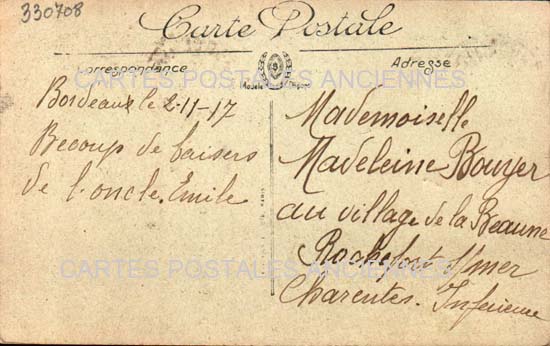 330708
Carte Postale
Correspondance
Adresse
Modèle Déposé
Bordeaux le 2-11-17
Becoup de baisers
de l'oncle. Emile
Mademoiselle
Madeleine Bouyer
au village de la Beaune
Rochefort s/mer
Charentes. Inferieure
CARTES POSTALES ANCIENNES
CARTES POSTALES ANCIENNES